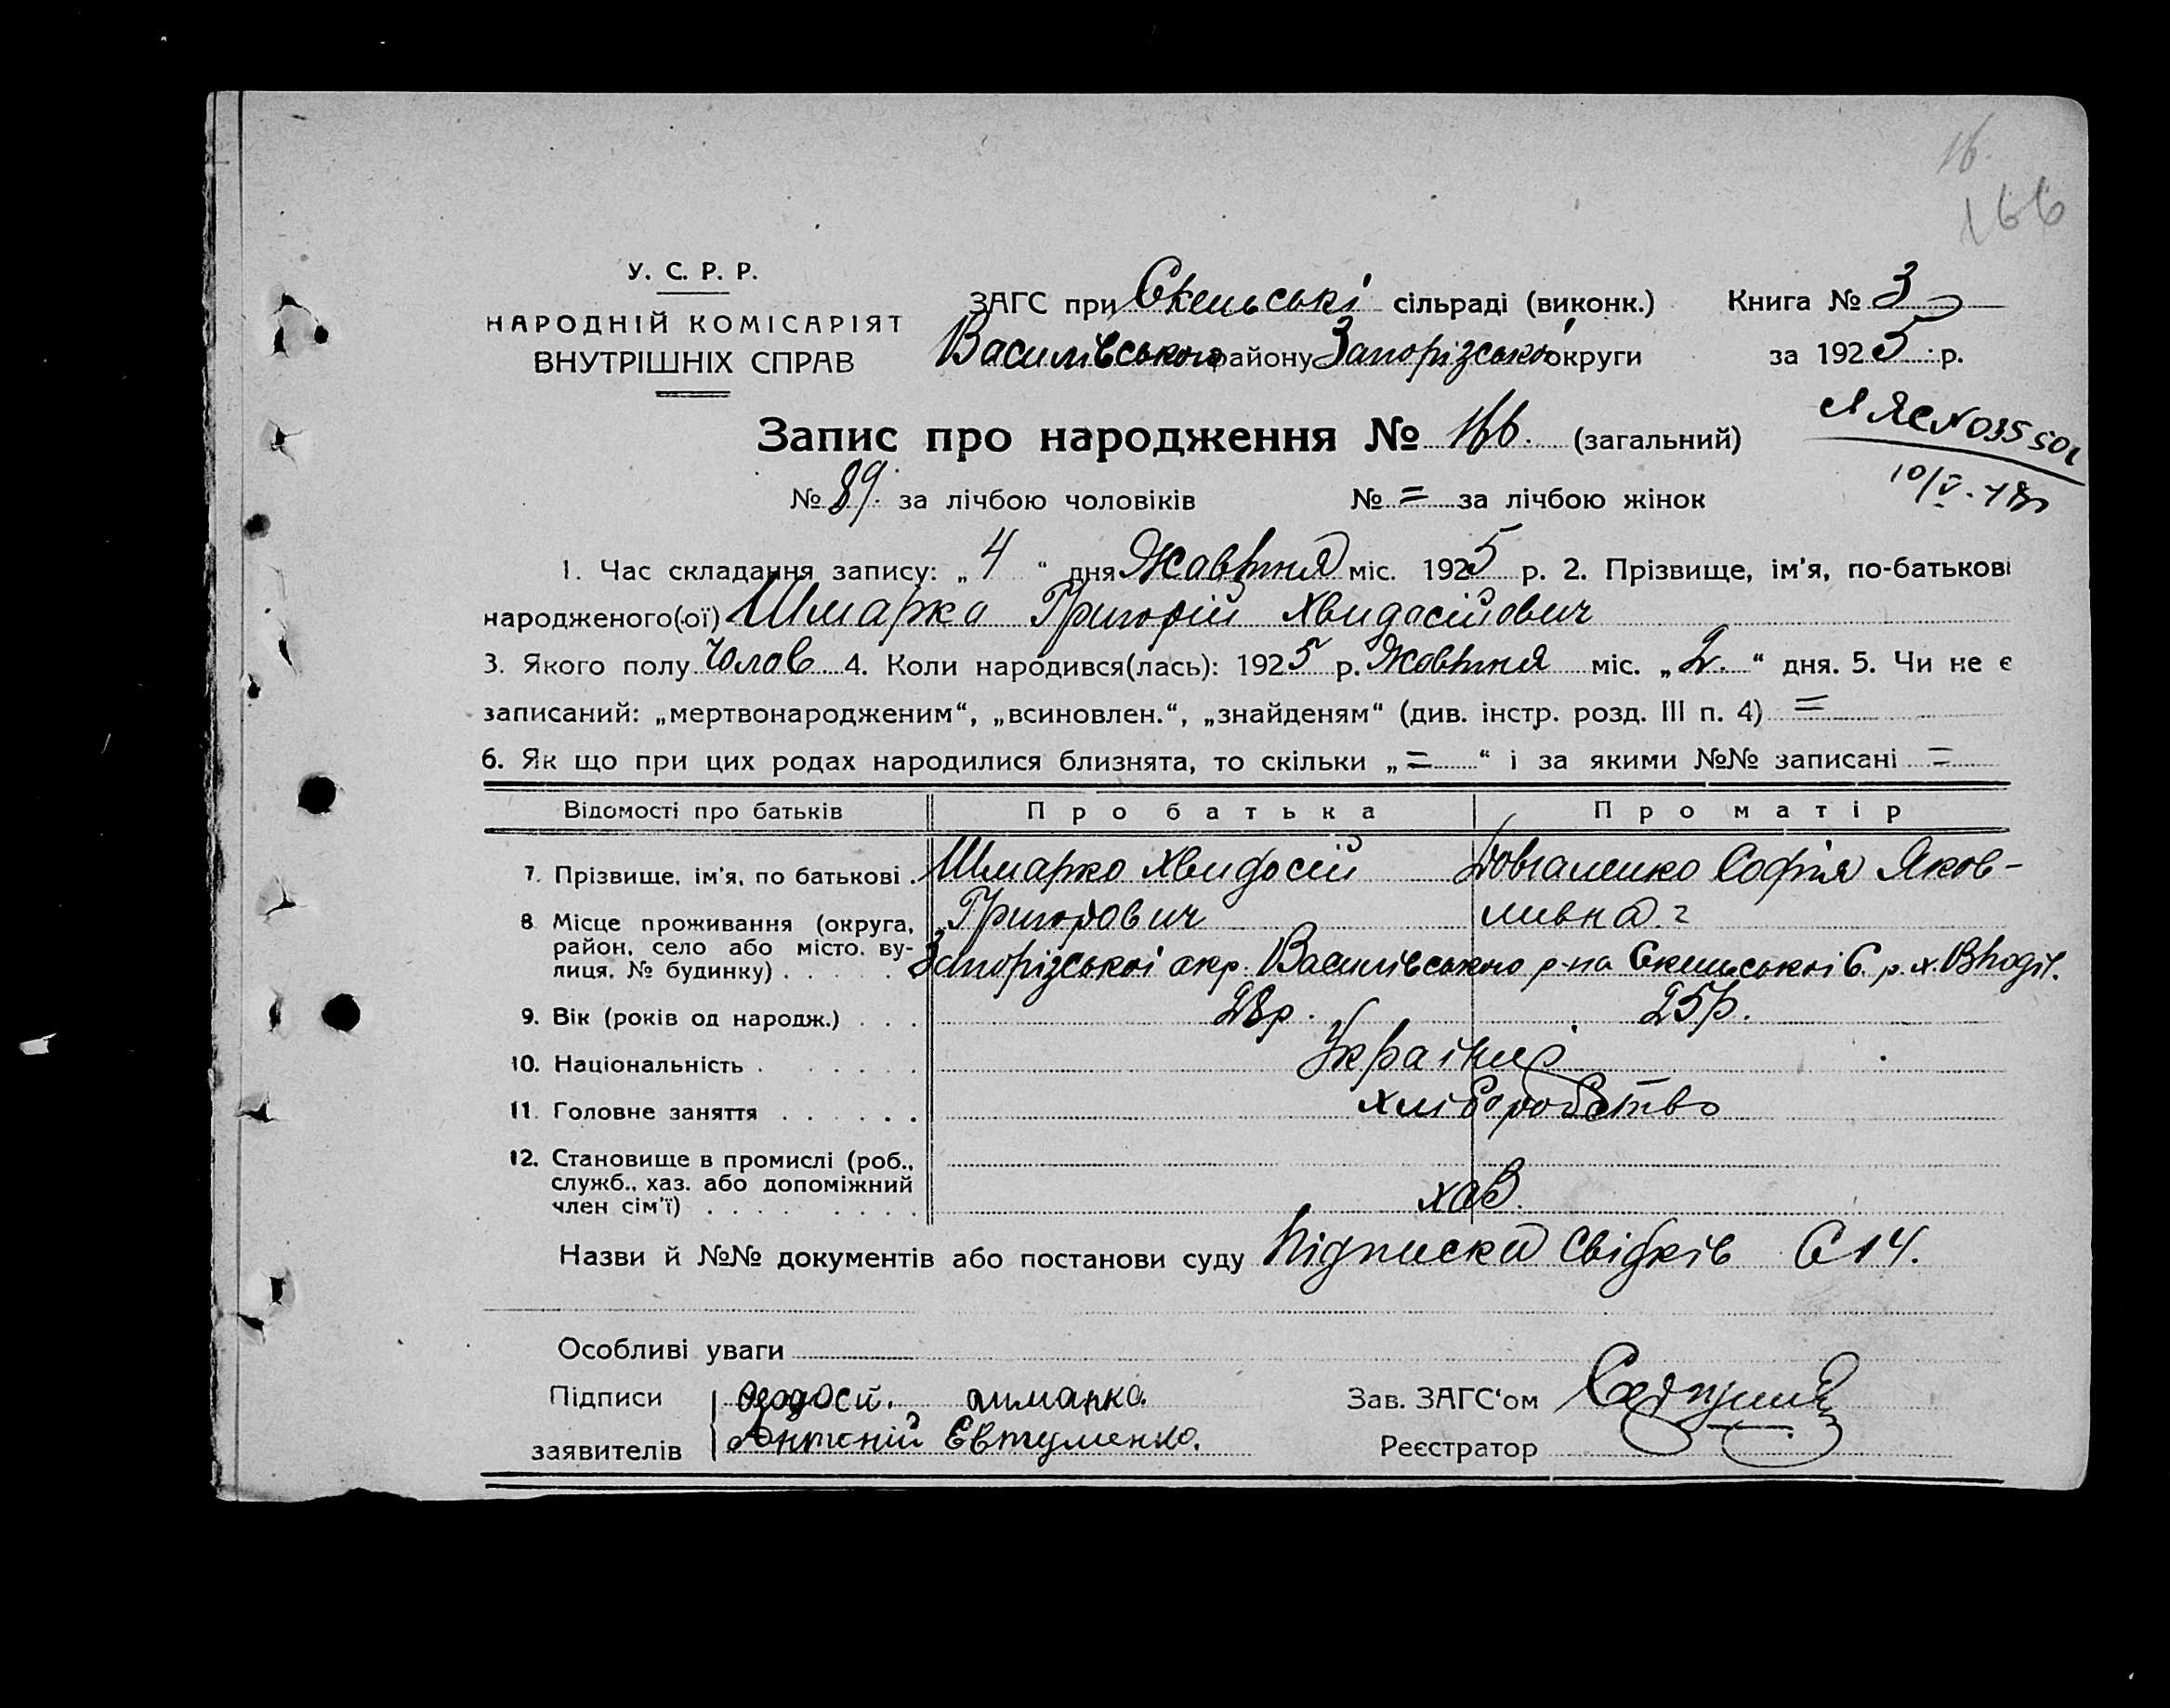 16.
166
У. С. Р. Р.
НАРОДНІЙ КОМІСАРІЯТ
ВНУТРІШНІХ СПРАВ
ЗАГС при Скельські сільраді (виконк.) Книга № 3
Василівського району Запорізської округи за 1925 р.
Запис про народження № 166. (загальний)
ЯЯС № 035502
№ 89. за лічбою чоловіків № = за лічбою жінок
10/V-48
1. Час складання запису: „4“ дня Жовтня міс. 1925 р. 2. Прізвище, ім'я, по-батькові
народженого(-ої) Шмарко Григорій Хвидосійович
3. Якого полу Чолов 4. Коли народився(лась): 1925 р. Жовтня міс. „2.“ дня. 5. Чи не є
записаний: „мертвонародженим“, „всиновлен.“, „знайденям“ (див. інстр. розд. III п. 4) =
6. Як що при цих родах народилися близнята, то скільки „=“ і за якими №№ записані =
Відомості про батьків Про батька Про матір
7. Прізвище, ім'я, по батькові . Шмарко Хвидосій Довгаленко Софія Яков-
Григорович ливна.
8 Місце проживання (округа,
район, село або місто, ву-
лиця, № будинку) . . . . . Запорізської окр. Василівського р-на Скельської С. р. х.
9. Вік (років од народж.) . . . 28р. 25р.
10. Національність . . . . . . . Україньці
11. Головне заняття . . . . . . хліборобство
12. Становище в промислі (роб.,
служб., хаз. або допоміжний
член сім'ї) . . . . . . . . хаз.
Назви й №№ документів або постанови суду Підписка свідків С 14.
Особливі уваги
Підписи Федосй. Шмарко.
заявителів Антоній Евтушенко.
Зав. ЗАГС'ом
Реєстратор